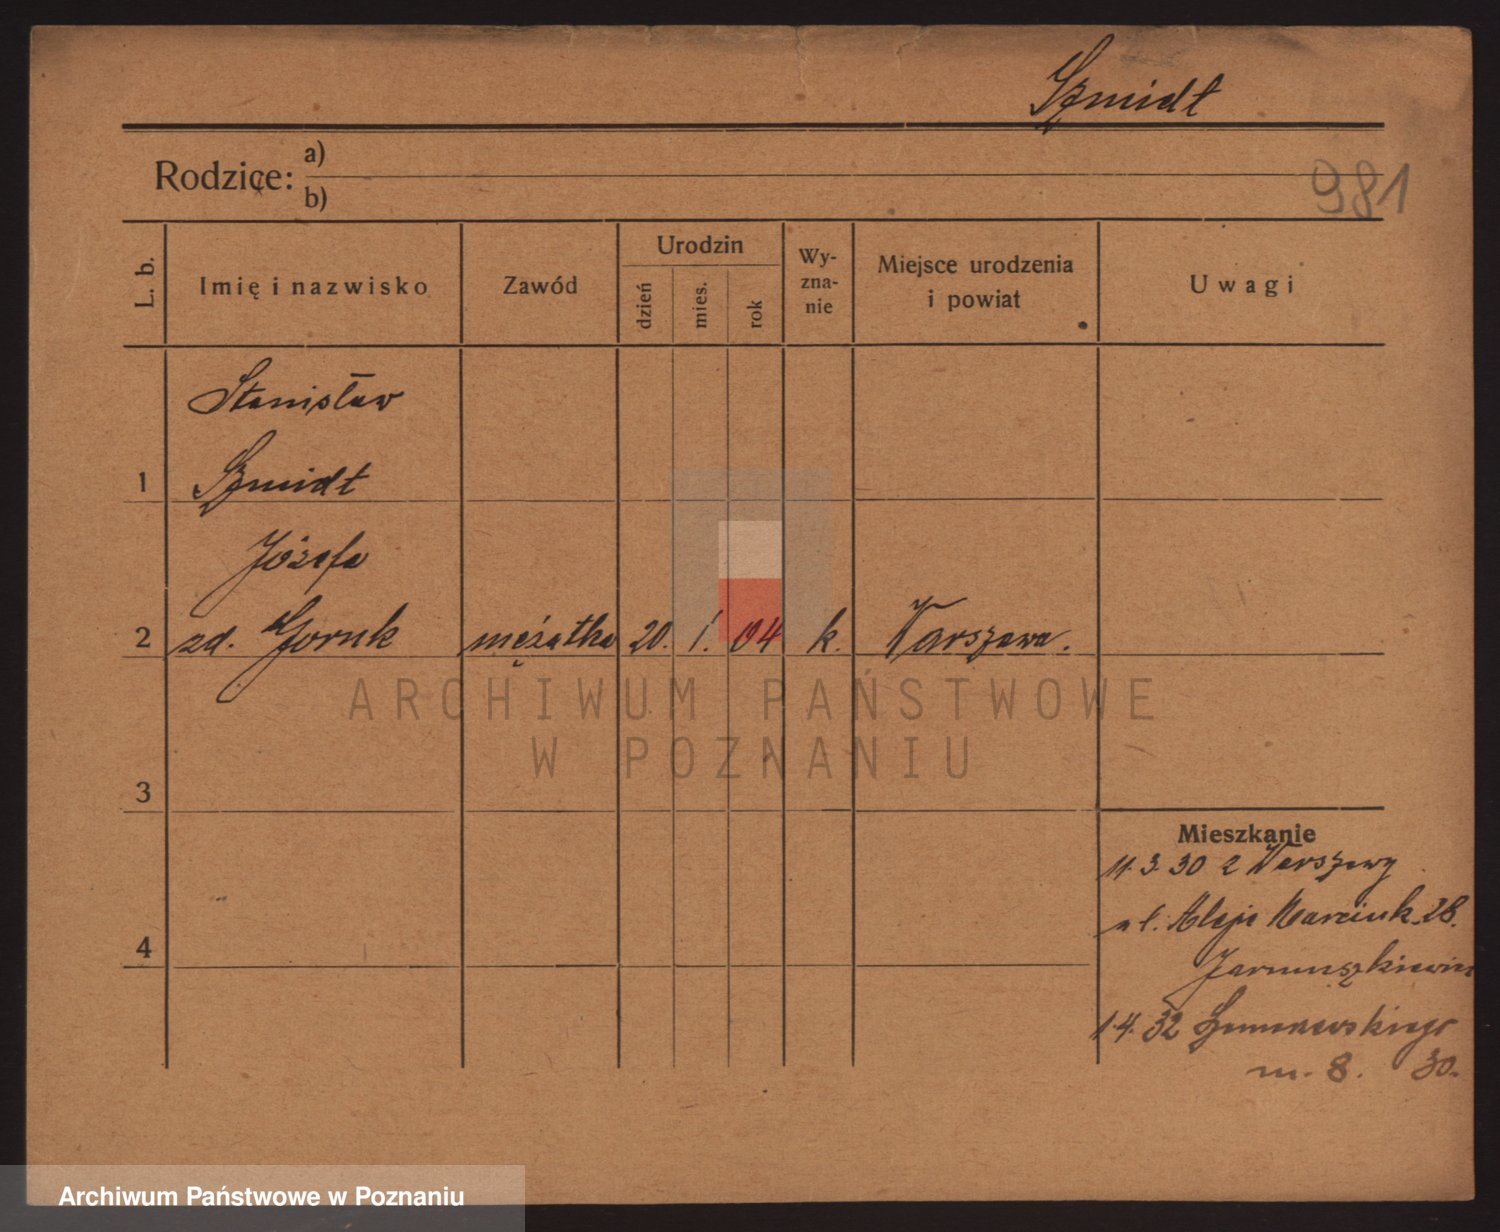 Szmidt
Rodzice:
a)
b)
981
L. b.
Imię i nazwisko
Zawód
Urodzin
dzień
mies.
rok
Wy-
zna-
nie
Miejsce urodzenia
i powiat
Uwagi
Stanisław
1 Szmidt
Józefa
2 zd. Gornk mężatka 20. 1. 04 k. Warszawa.
ARCHIWUM PAŃSTWOWE
W POZNANIU
3
Mieszkanie
11. 3. 30 z Warszawy
ul. Aleje Marcink. 28.
4
1. 4. 32
m. 8. 30.
Archiwum Państwowe w Poznaniu